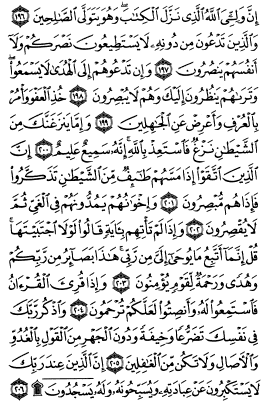 إِنَّ وَلِـِّۧيَ ٱللَّهُ ٱلَّذِي نَزَّلَ ٱلۡكِتَٰبَۖ وَهُوَ يَتَوَلَّى ٱلصَّٰلِحِينَ ١٩٦
وَٱلَّذِينَ تَدۡعُونَ مِن دُونِهِۦ لَا يَسۡتَطِيعُونَ نَصۡرَكُمۡ وَلَآ
أَنفُسَهُمۡ يَنصُرُونَ ١٩٧ وَإِن تَدۡعُوهُمۡ إِلَى ٱلۡهُدَىٰ لَا يَسۡمَعُواْۖ
وَتَرَىٰهُمۡ يَنظُرُونَ إِلَيۡكَ وَهُمۡ لَا يُبۡصِرُونَ ١٩٨ خُذِ ٱلۡعَفۡوَ وَأۡمُرۡ
بِٱلۡعُرۡفِ وَأَعۡرِضۡ عَنِ ٱلۡجَٰهِلِينَ ١٩٩ وَإِمَّا يَنزَغَنَّكَ مِنَ
ٱلشَّيۡطَٰنِ نَزۡغٞ فَٱسۡتَعِذۡ بِٱللَّهِۚ إِنَّهُۥ سَمِيعٌ عَلِيمٌ ٢٠٠ إِنَّ
ٱلَّذِينَ ٱتَّقَوۡاْ إِذَا مَسَّهُمۡ طَٰٓئِفٞ مِّنَ ٱلشَّيۡطَٰنِ تَذَكَّرُواْ
فَإِذَا هُم مُّبۡصِرُونَ ٢٠١ وَإِخۡوَٰنُهُمۡ يَمُدُّونَهُمۡ فِي ٱلۡغَيِّ ثُمَّ
لَا يُقۡصِرُونَ ٢٠٢ وَإِذَا لَمۡ تَأۡتِهِم بِـَٔايَةٖ قَالُواْ لَوۡلَا ٱجۡتَبَيۡتَهَاۚ
قُلۡ إِنَّمَآ أَتَّبِعُ مَا يُوحَىٰٓ إِلَيَّ مِن رَّبِّيۚ هَٰذَا بَصَآئِرُ مِن رَّبِّكُمۡ
وَهُدٗى وَرَحۡمَةٞ لِّقَوۡمٖ يُؤۡمِنُونَ ٢٠٣ وَإِذَا قُرِئَ ٱلۡقُرۡءَانُ
فَٱسۡتَمِعُواْ لَهُۥ وَأَنصِتُواْ لَعَلَّكُمۡ تُرۡحَمُونَ ٢٠٤ وَٱذۡكُر رَّبَّكَ
فِي نَفۡسِكَ تَضَرُّعٗا وَخِيفَةٗ وَدُونَ ٱلۡجَهۡرِ مِنَ ٱلۡقَوۡلِ بِٱلۡغُدُوِّ
وَٱلۡأٓصَالِ وَلَا تَكُن مِّنَ ٱلۡغَٰفِلِينَ ٢٠٥ إِنَّ ٱلَّذِينَ عِندَ رَبِّكَ
لَا يَسۡتَكۡبِرُونَ عَنۡ عِبَادَتِهِۦ وَيُسَبِّحُونَهُۥ وَلَهُۥ يَسۡجُدُونَۤ۩ ٢٠٦